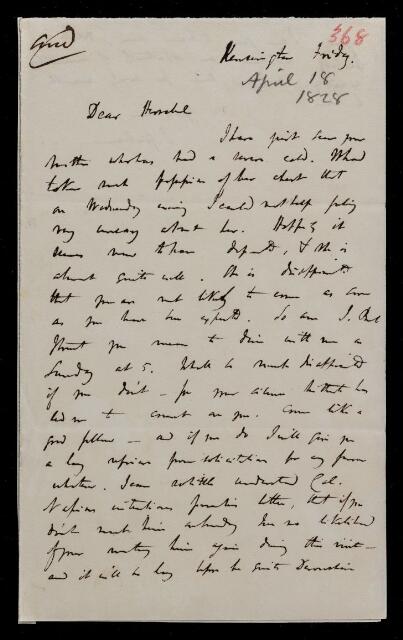 368
Kensington Friday.
April 18
1828
Dear Herschel
I have just seen your
mother who has had a severe cold.
taken such of her chest that
on Wednesday evening I could not help feeling
very uneasy about her. Happily it
seems now to have departed, & she is
almost quite well. She is disappointed
that you are not likely to come as soon
as you have been expected. So am I. But
I trust you mean to dine with me on
Sunday at 5. I shall be much disappointed
if you don't – for your silence hitherto has
led me to count on you. Come like a
good fellow – and if you do I will give you
a long from solicitations for any favour
whatever. I can Col.
Napier's intentions from his letter, that if you
don't meet him on Sunday there is no likelihood
of your meeting him again during this visit –
and it will be long before he quits Devonshire